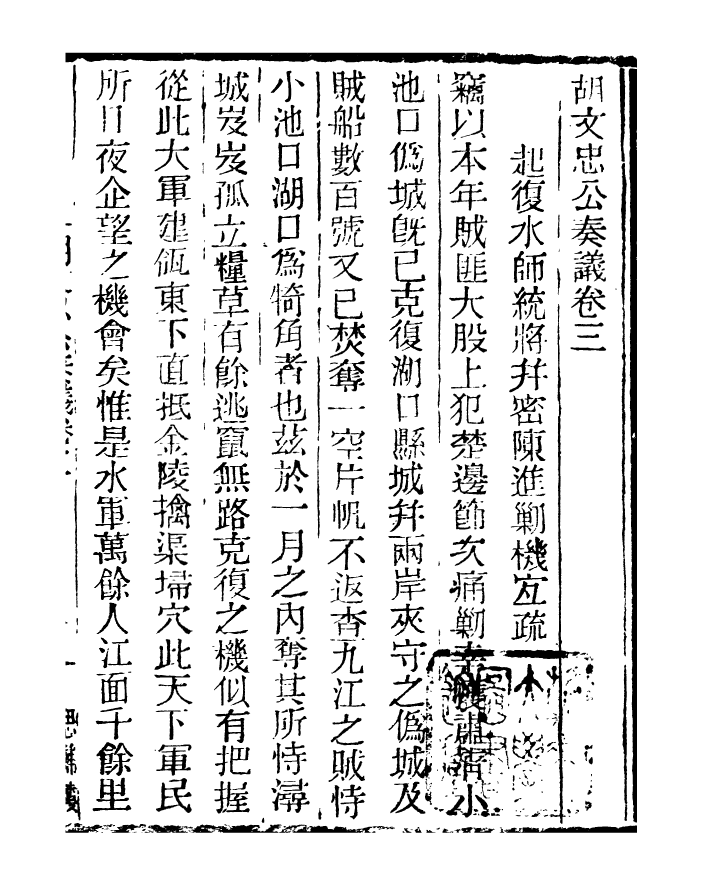 胡文忠公奏議卷三
起復水師統將幷密陳進剿機宐疏
竊以本年賊匪大股上犯楚邊節次痛剿幸獲肅淸小
池口僞城旣已克復湖口縣城幷兩岸夾守之僞城及
賊船數百號又已焚奪一空片帆不返查九江之賊恃
小池口湖口爲犄角者也茲於一月之內奪其所恃潯
城岌岌孤立糧草有餘逃竄無路克復之機似有把握
從此大軍建瓴東下直抵金陵擒渠埽穴此天下軍民
所日夜企望之機會矣惟是水軍萬餘人江面千餘里